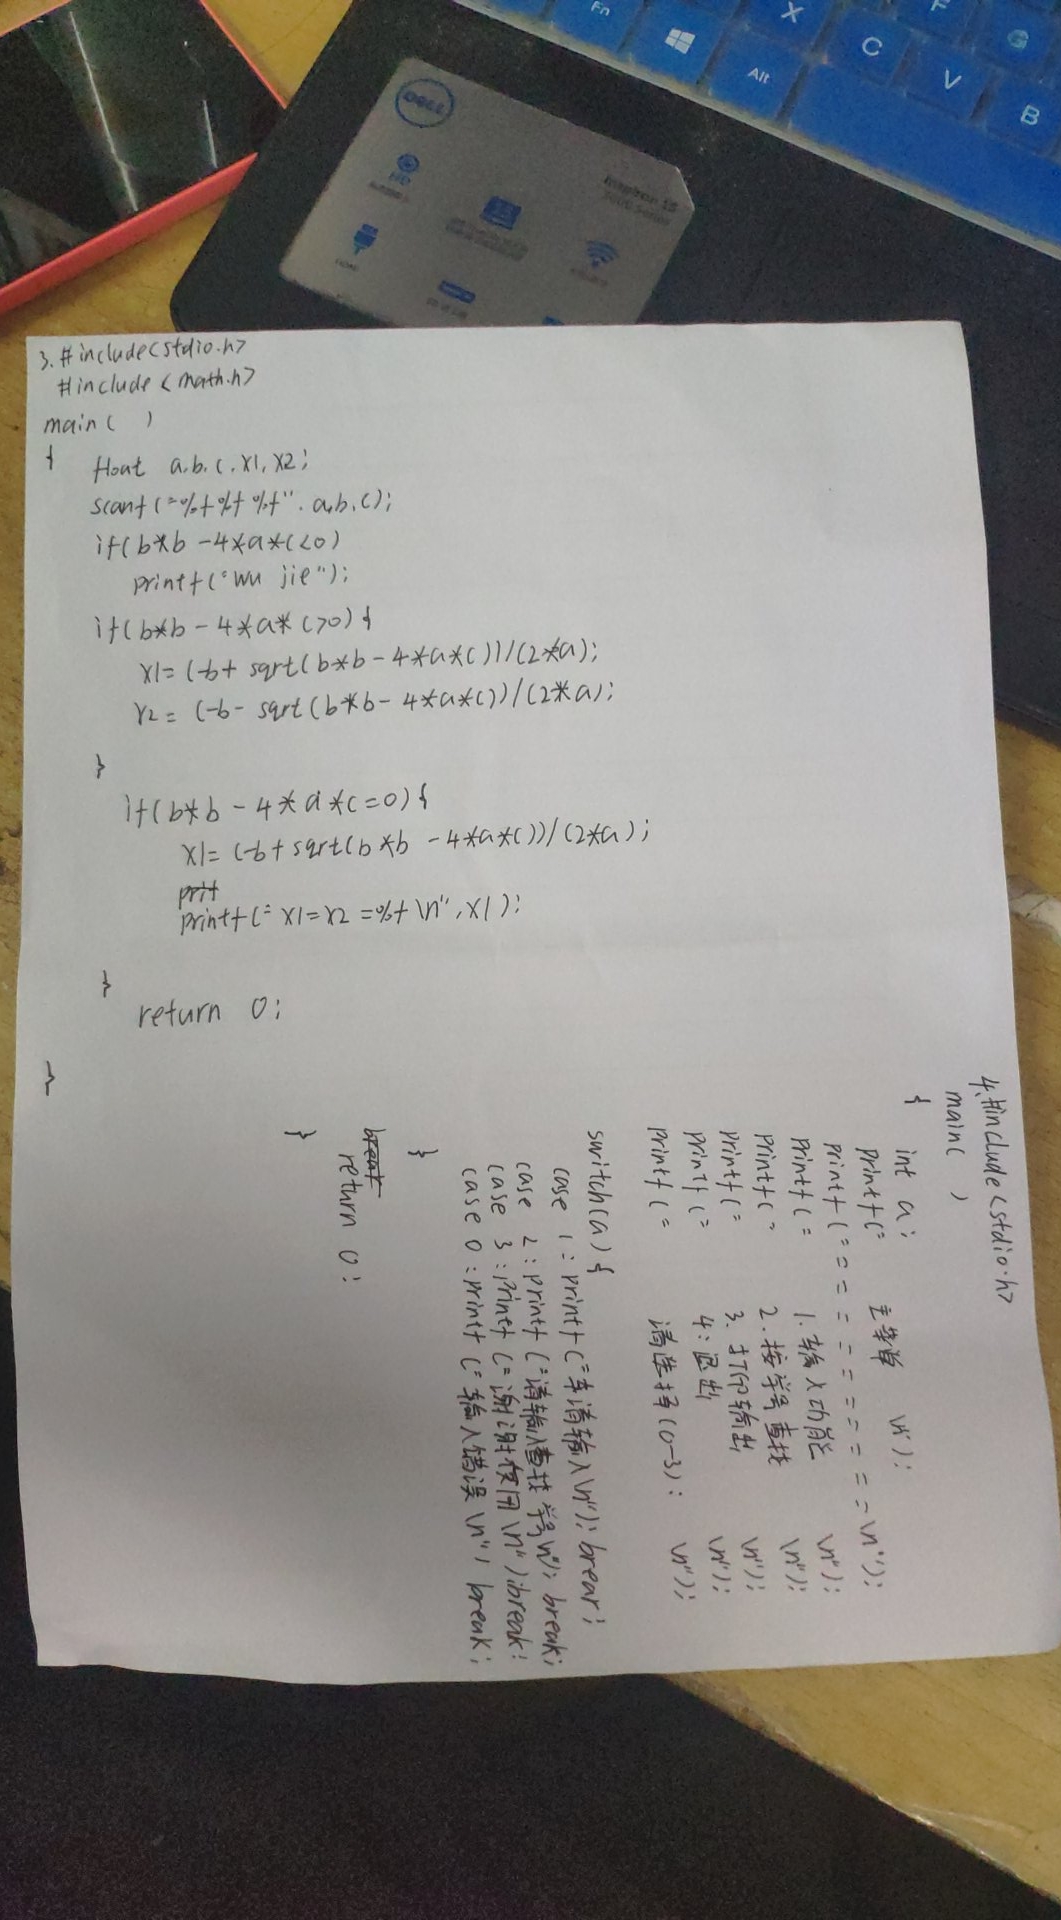 Fn
X
F
C
V
B
Alt
DELL
HD
HDMI
Inspiron 15
3.#include<stdio.h>
#include<math.h>
main( )
{
float a,b,c,x1,x2;
scanf("%f%f%f",a,b,c);
if(b*b-4*a*c<0)
printf("wu jie");
if(b*b-4*a*c>0){
x1=(-b+sqrt(b*b-4*a*c))/(2*a);
x2=(-b-sqrt(b*b-4*a*c))/(2*a);
}
if(b*b-4*a*c=0){
x1=(-b+sqrt(b*b-4*a*c))/(2*a);
prit
printf("x1=x2=%f\n",x1);
}
return 0;
}
4.#include<stdio.h>
main( )
{
int a;
printf(" 主菜单 \n");
printf("==========\n");
printf(" 1.输入功能 \n");
printf(" 2.按学号查找 \n");
printf(" 3.打印输出 \n");
printf(" 4:退出 \n");
printf(" 请选择(0-3): \n");
switch(a){
case 1:printf("请输入\n");brear;
case 2:printf("请输入查找学号\n");break;
case 3:printf("谢谢使用\n");break;
case 0:printf("输入错误\n") break;
}
break
return 0;
}